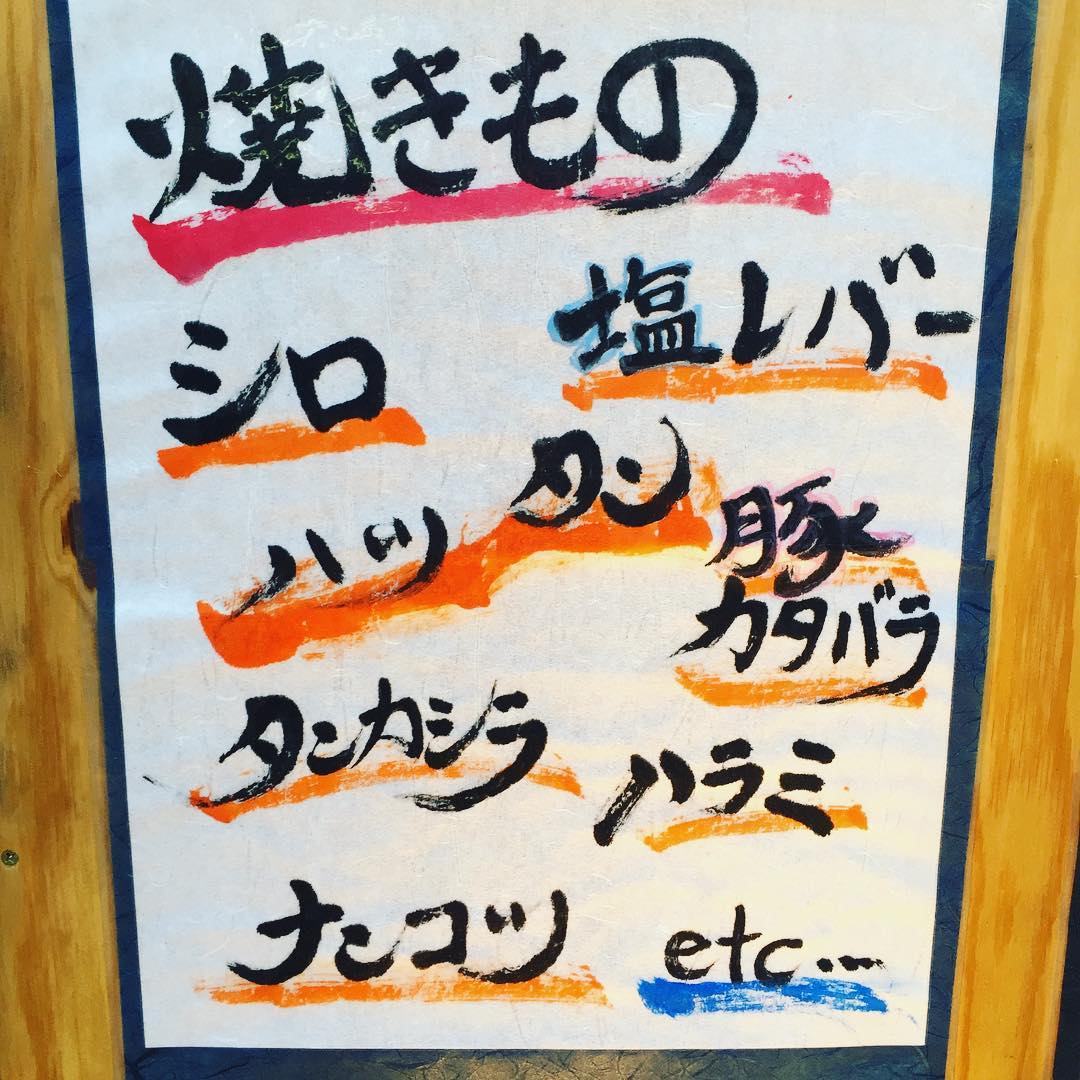 焼きもの
塩レバー
シロ
タン
ハツ
豚
カタバラ
タンカシラ
ハラミ
ナンコツ
etc...